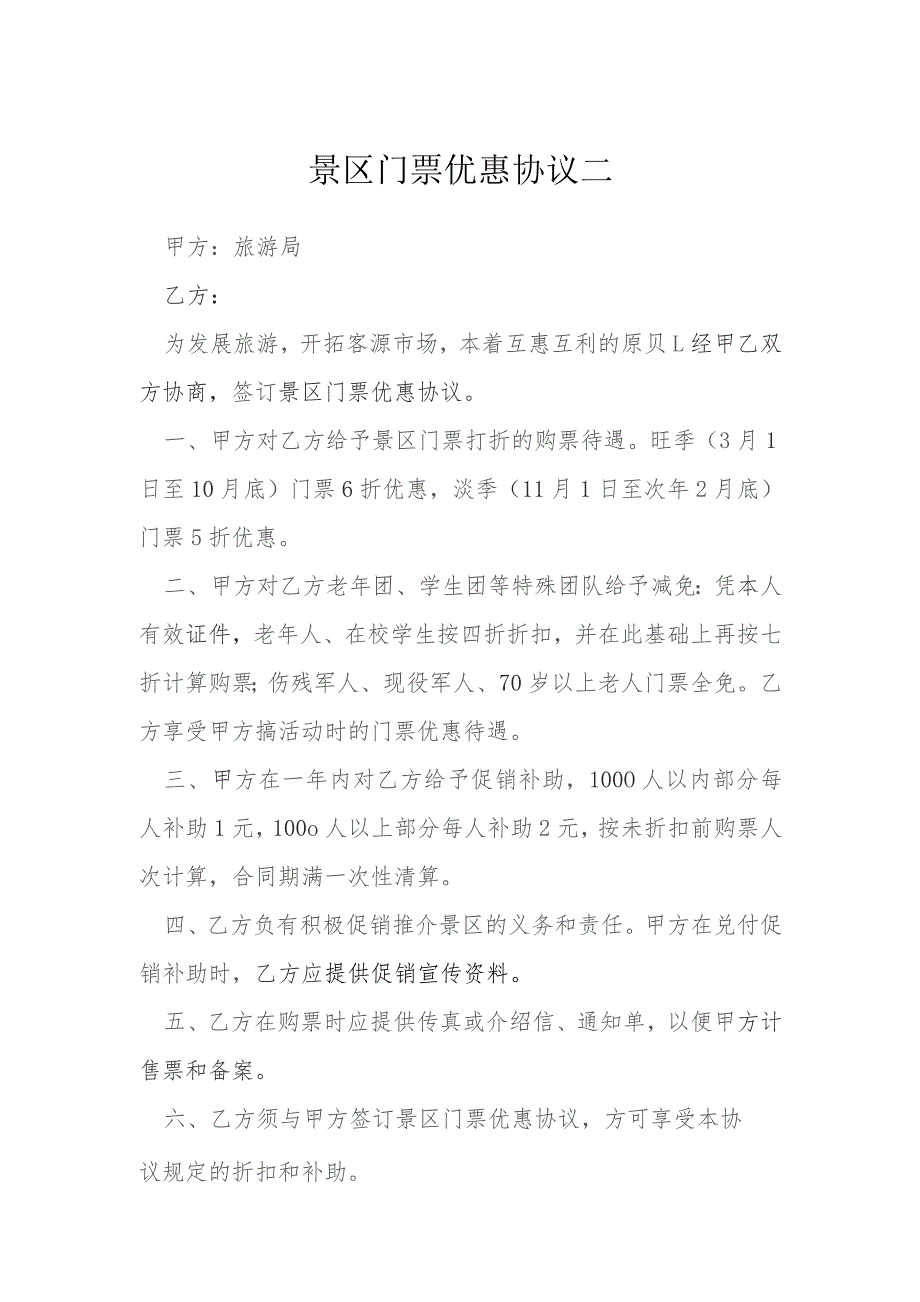 景区门票优惠协议二
甲方：旅游局
乙方：
为发展旅游，开拓客源市场，本着互惠互利的原贝L经甲乙双
方协商，签订景区门票优惠协议。
一、甲方对乙方给予景区门票打折的购票待遇。旺季（3月1
日至10月底）门票6折优惠，淡季（11月1日至次年2月底）
门票5折优惠。
二、甲方对乙方老年团、学生团等特殊团队给予减免：凭本人
有效证件，老年人、在校学生按四折折扣，并在此基础上再按七
折计算购票；伤残军人、现役军人、70岁以上老人门票全免。乙
方享受甲方搞活动时的门票优惠待遇。
三、甲方在一年内对乙方给予促销补助，100O人以内部分每
人补助1元，100o人以上部分每人补助2元，按未折扣前购票人
次计算，合同期满一次性清算。
四、乙方负有积极促销推介景区的义务和责任。甲方在兑付促
销补助时，乙方应提供促销宣传资料。
五、乙方在购票时应提供传真或介绍信、通知单，以便甲方计
售票和备案。
六、乙方须与甲方签订景区门票优惠协议，方可享受本协
议规定的折扣和补助。